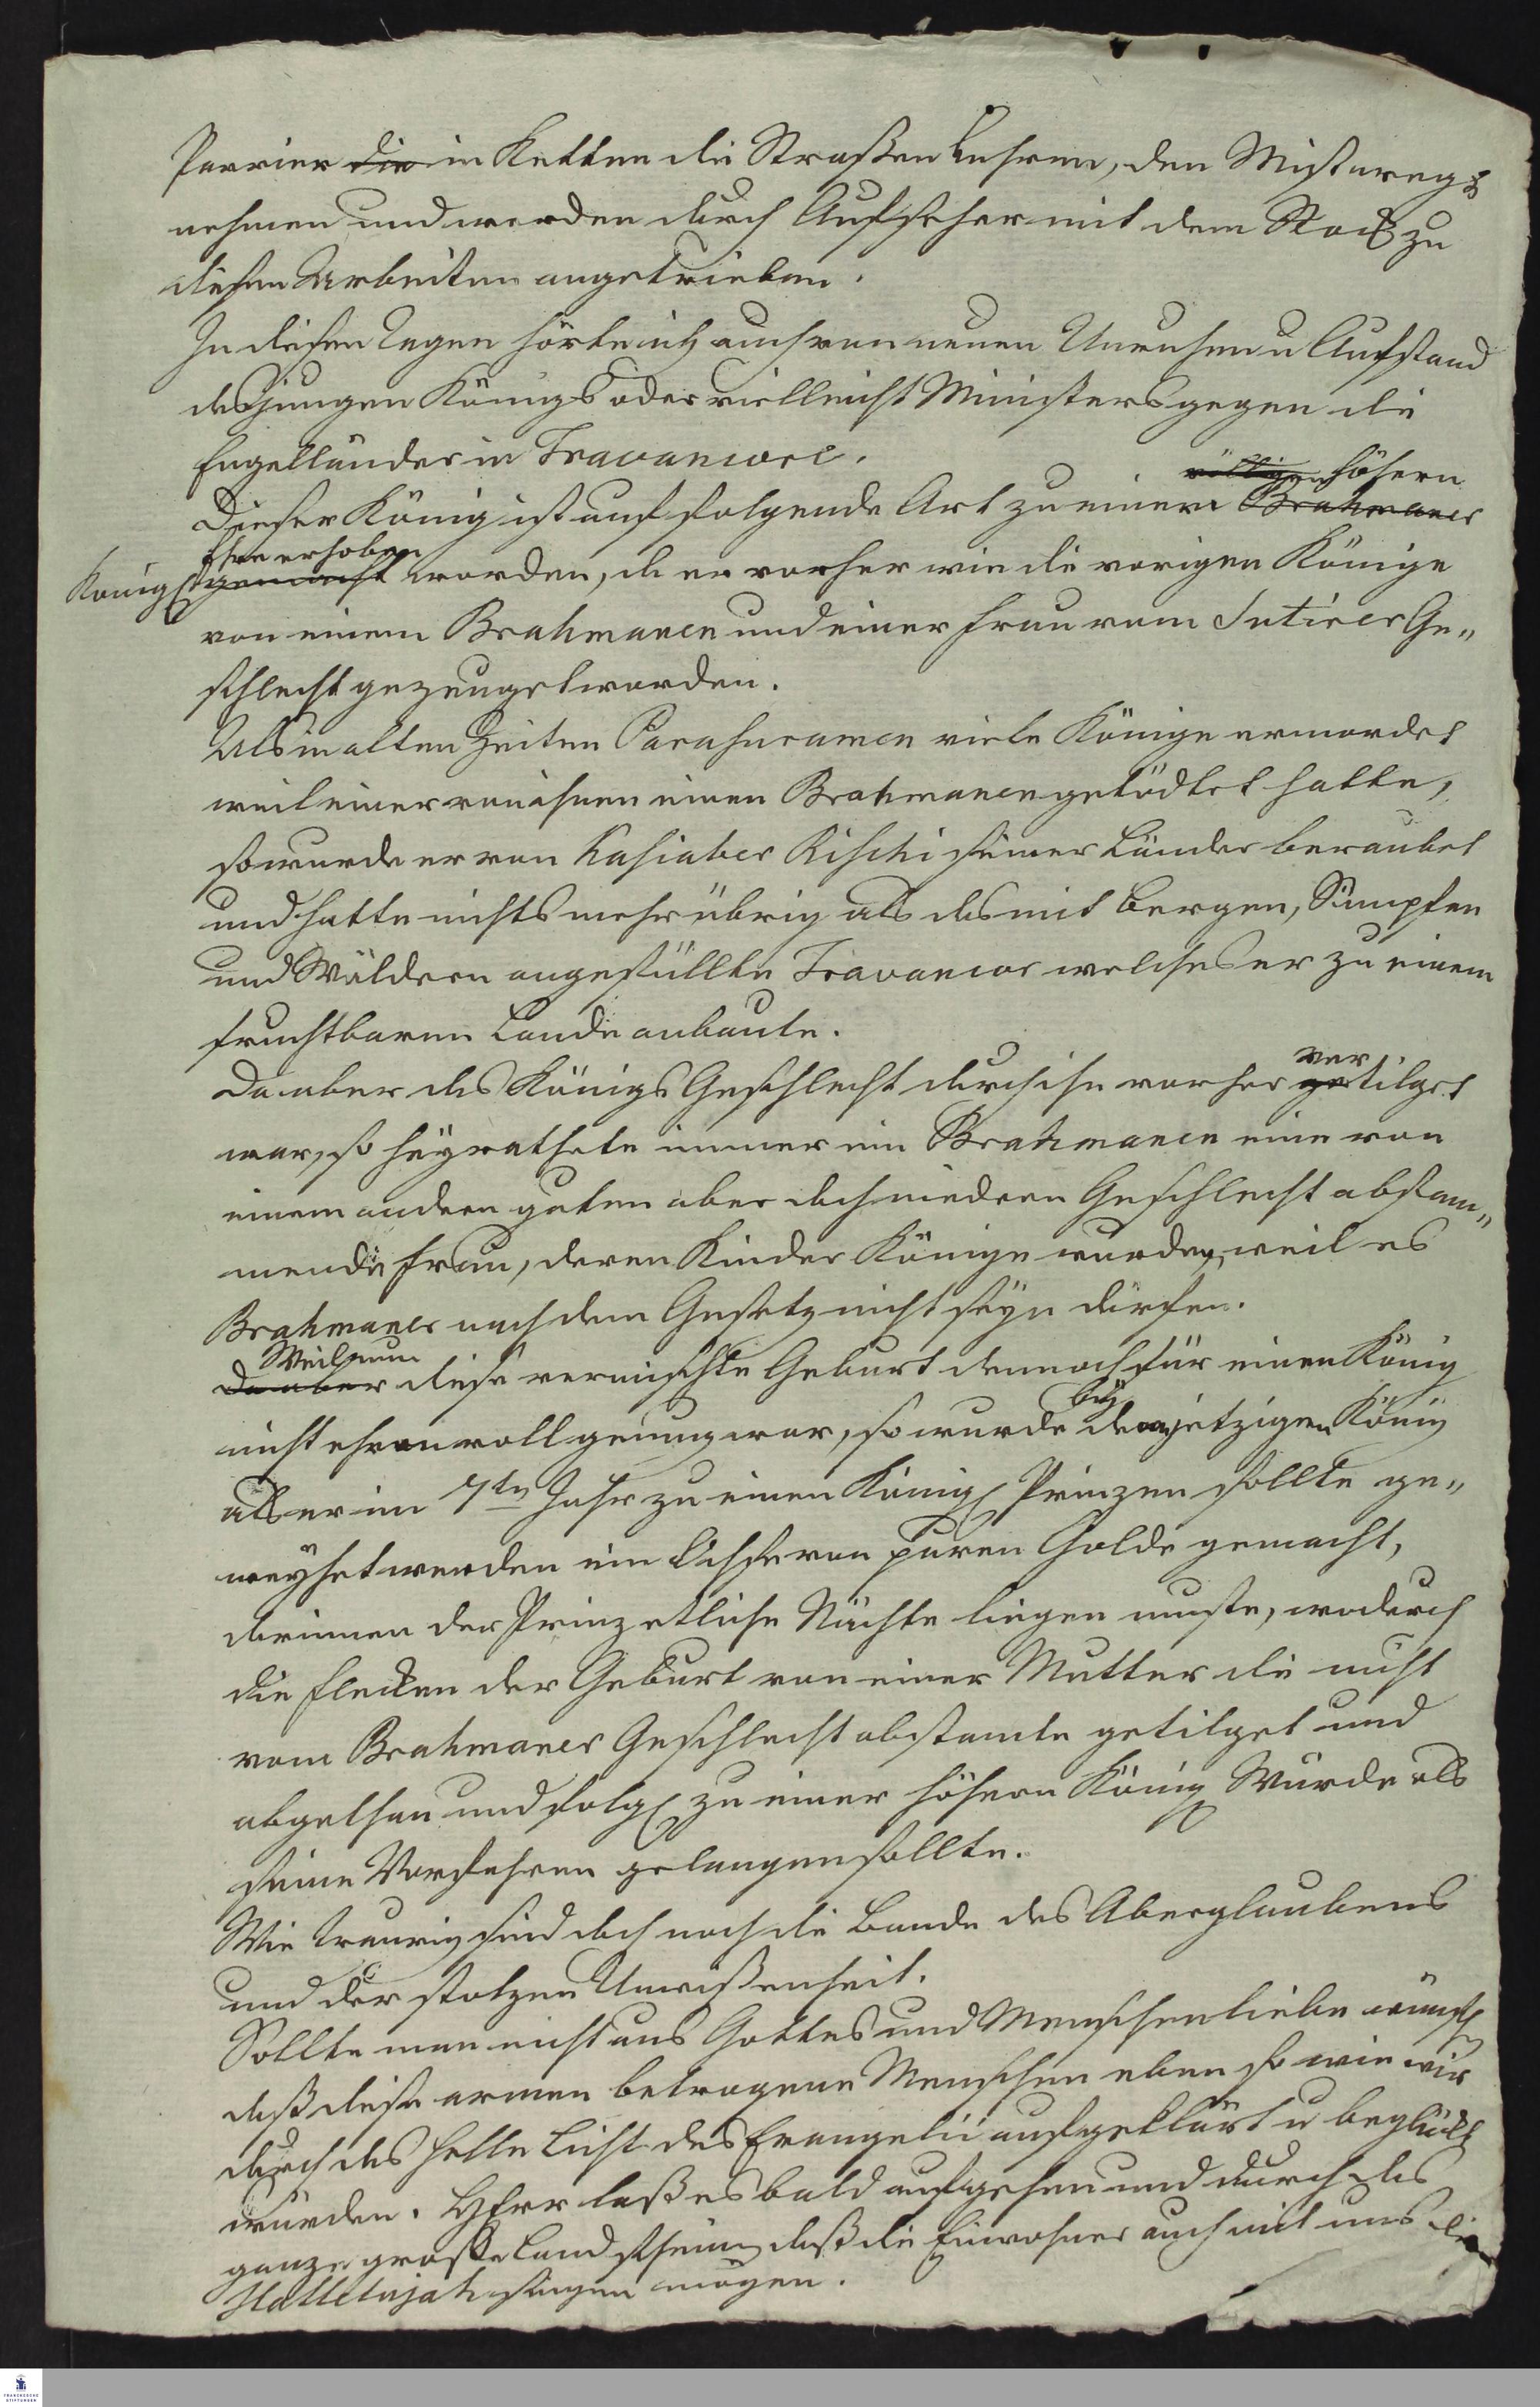 Parrier die in Ketten die Straßen kehren, den Mist weg=
nehmen und werden durch Aufseher mit dem Stock zu
diesen Arbeiten angetrieben.
In diesen Tagen hörte ich auch von neuen Unruhen u Aufstand
des jungen Königs oder vielleicht Ministers gegen die
Engelländer in Travancore.
völligen höhern
Dieser König ist auf folgende Art zu einem Brahmaner
Ehre erhoben
Königl gemacht worden, da er vorher wie die vorigen Könige
von einem Brahmanen und einer Frau vom Sutirer Ge„
schlecht gezeuget worden.
Als in alten Zeiten Parasuramen viele Könige ermordet
weil einer von ihnen einen Brahmanen getödtet hatte,
so wurde er von Kasiaber Rischi seiner Länder beraubet
und hatte nichts mehr übrig als das mit Bergen, Sümpfen
und Wäldern angefüllte Travancor welches er zu einem
fruchtbaren Lande anbaute.
ver
Da aber des Königs Geschlecht durch ihn vorher getilget
war, so heyrathete immer ein Brahmanen eine von
einem andern guten aber doch niedern Geschlecht abstam„
mende Frau, deren Kinder Könige wurden, weil es
Brahmaner nach dem Gesetz nicht seyn dürfen.
Weil nun
Da aber diese vermischte Geburt dennoch für einen König
bey
nicht ehrenvoll genung war, so wurde dem jetzigen König
als er im 7ten Jahr zu einen Königl Prinzen sollte ge„
weyhet werden ein Ochse von puren Golde gemacht,
darinnen der Prinz etliche Nächte liegen muste, wodurch
die Flecken der Geburt von einer Mutter die nicht
vom Brahmaner Geschlecht abstamte getilget und
abgethan und folgl zu einer höhern Königl Würde als
seine Vorfahren gelangen sollte.
Wie traurig sind doch noch die Bande des Aberglaubens
und der stolzen Unwißenheit.
Sollte man nicht aus Gottes und Menschenliebe wünsch
daß diese armen betrogene Menschen eben so wie wir
durch das helle Licht des Evangelii aufgeklärt u beglückt
würden. HErr laß es bald aufgehen und durch das
ganze große Land scheinen daß die Einwohner auch mit uns
Hallelujah singen mögen.
FRANCKESCHE
STIFTUNGEN